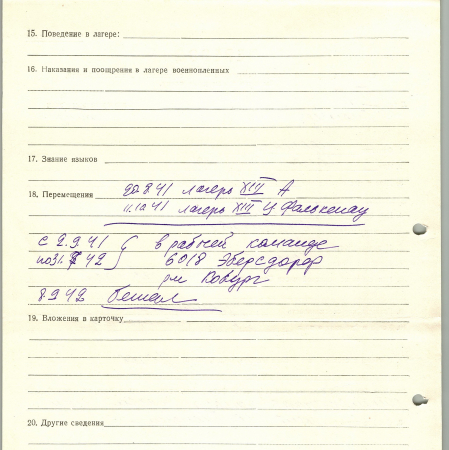 15. Поведение в лагере:
16. Наказания и поощрения в лагере военнопленных
17. Знание языков
18. Перемещения 20.8 41 лагерь XIII А
11.10 41 лагерь XIII Ц Фалькенау
с 2.9 41 в рабочей команде
по 31. 7 42 6018 Эберсдорф
р-н Кобург
8.9 42 бежал
19. Вложения в карточку
20. Другие сведения